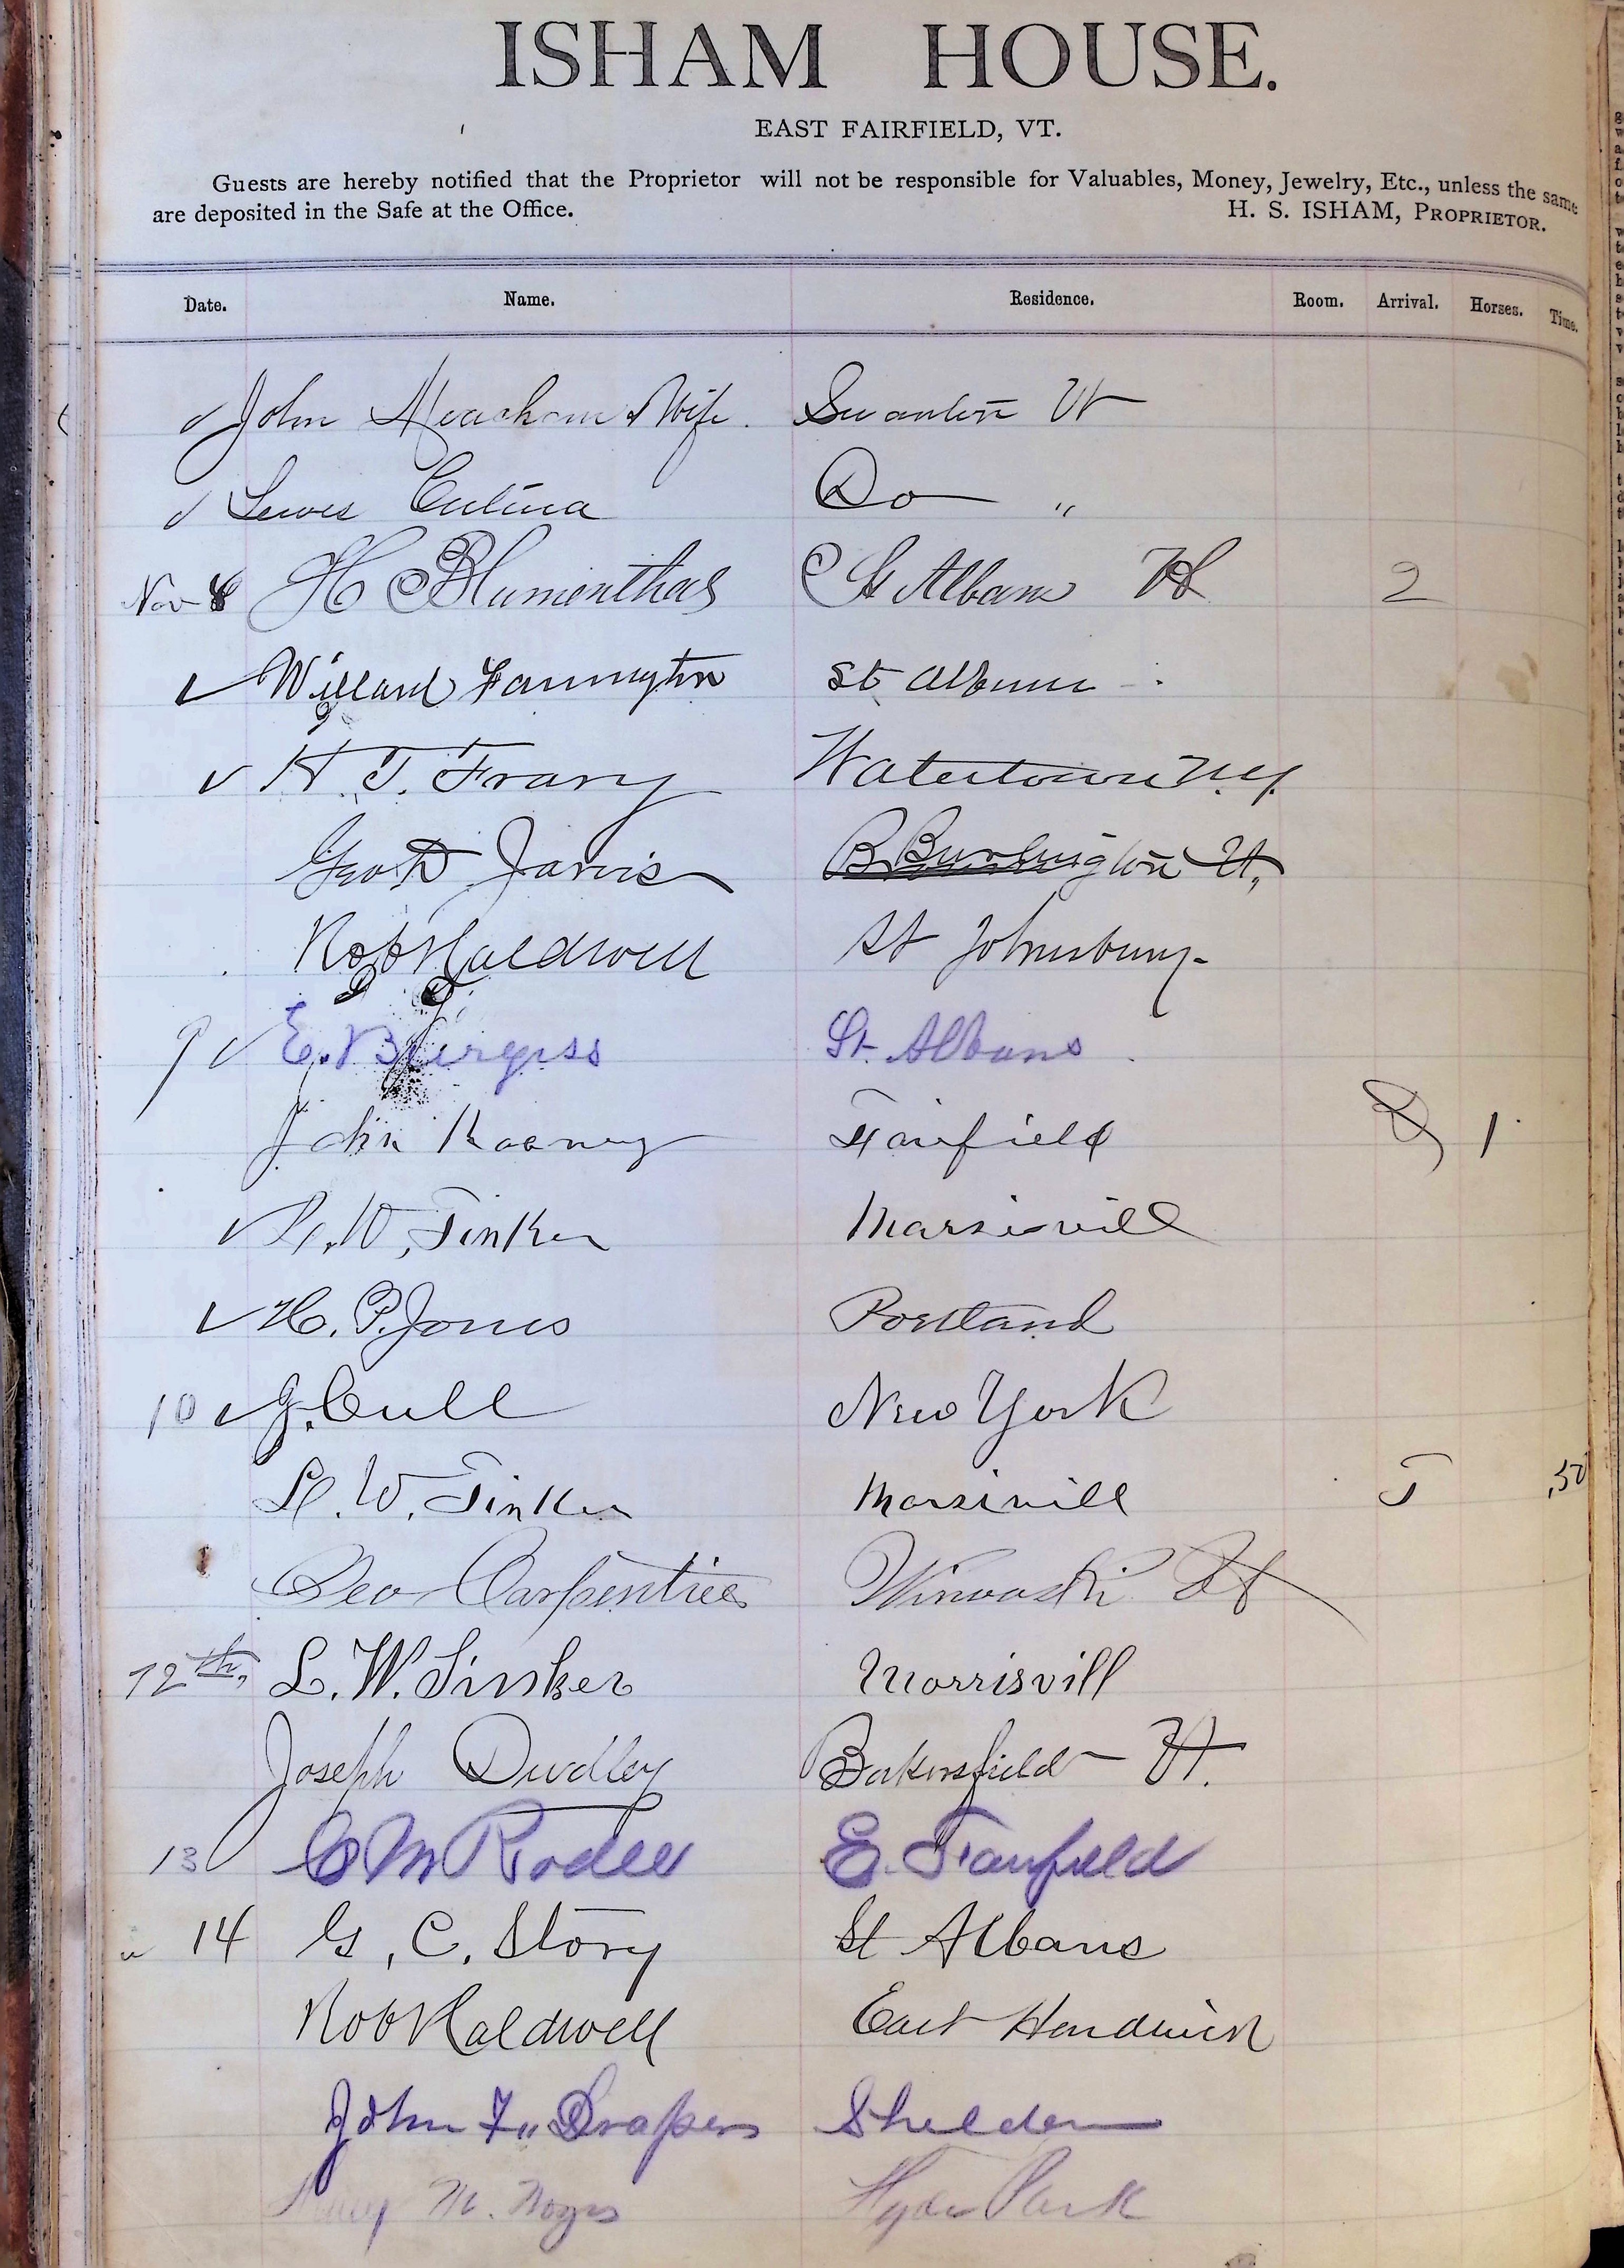 ISHAM HOUSE.
EAST FAIRFIELD, VT.
Guests are hereby notified that the Proprietor will not be responsible for Valuables, Money, Jewelry, Etc., unless the same
are deposited in the Safe at the Office. H. S. ISHAM, PROPRIETOR.
Date. Name. Residence. Room. Arrival. Horses. Time.
✓ John Meacham & Wife. Swanton Vt
✓ Lewis Do "
Nov 8 H Blumenthal St Albans Vt 2
✓ Willard Farrington St Albans
✓ H. T. Frary Watertown N.Y.
Geo D Jarvis Burlington Vt,
Rob Kaldwell St Johnsbury-
9 ✓ E. Burgess St. Albans
John Rooney Fairfield 1
✓ L. W. Tinker Morsisvill
✓ H. P. Jones Portland
10 ✓ J. Cull New York
L. W. Tinker Morsivill T ,50
Geo Carpentier Winooski Vt
12th, L. W. Tinker Morrisvill
Joseph Dudley Bakersfield Vt.
13 C M Rodee E. Fairfield
" 14 G. C. Story St Albans
Rob Kaldwell East Hardwick
John F. Draper Sheldon
M. Noyes Hyde Park